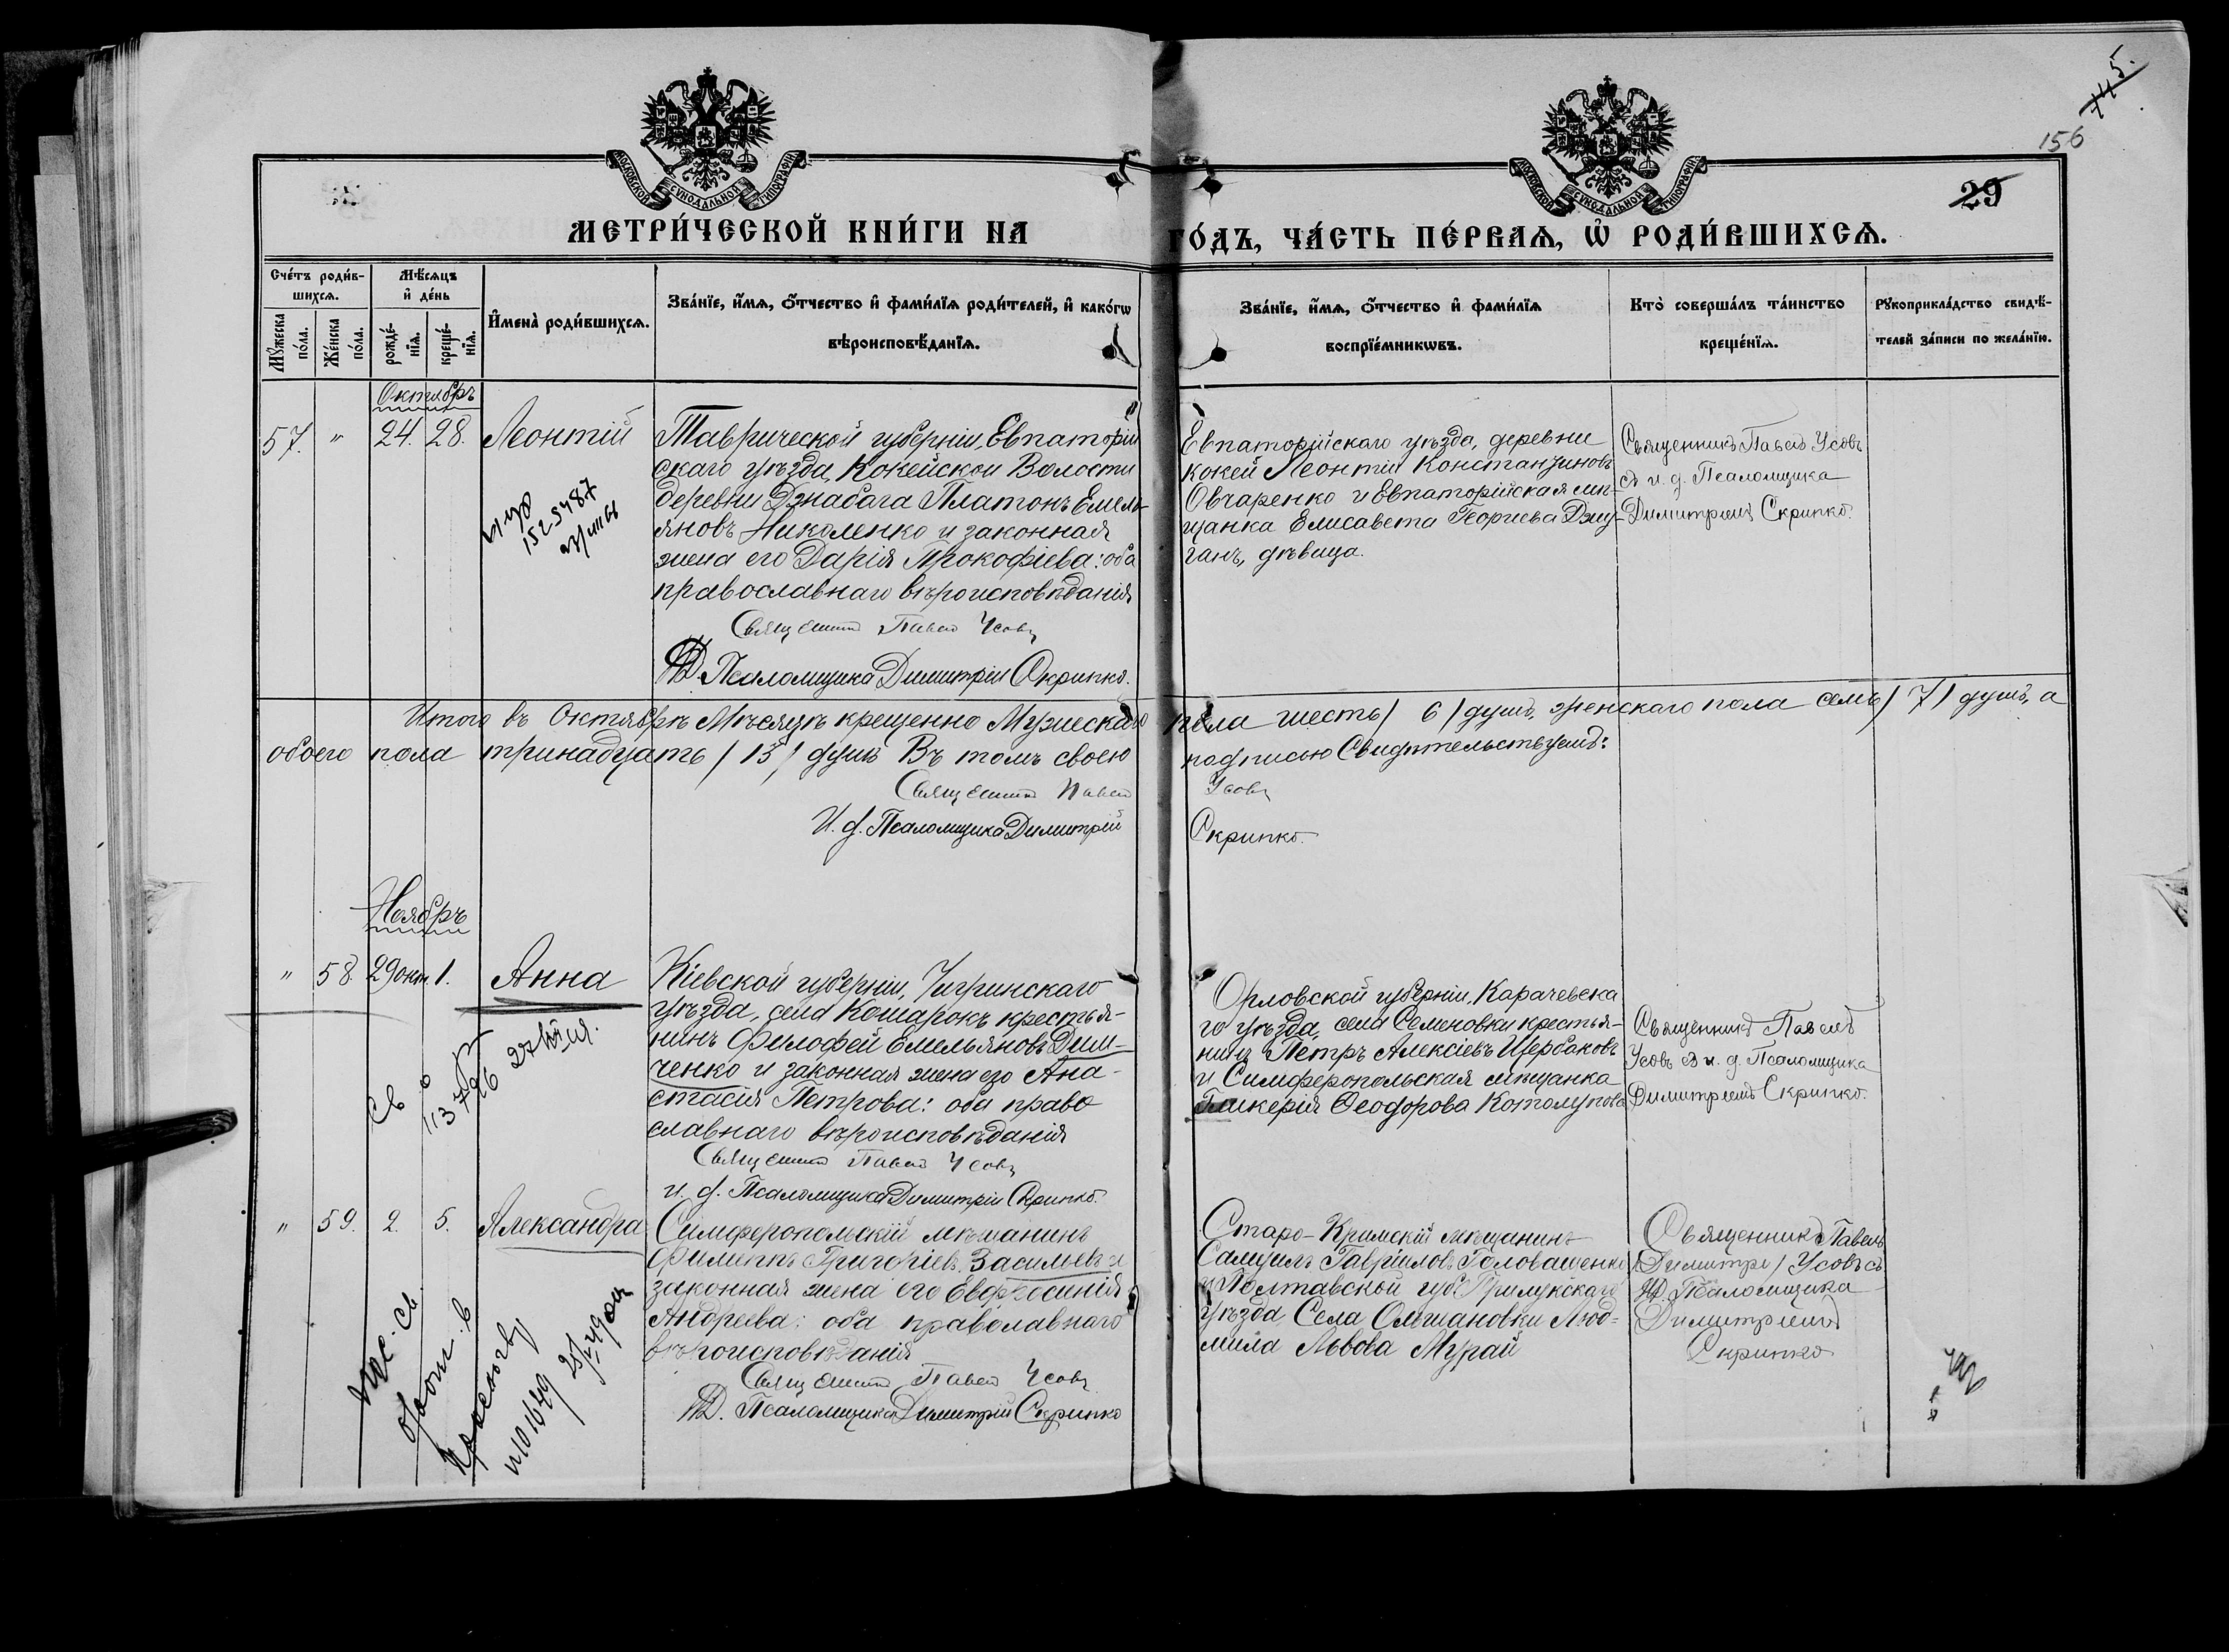 5.
156
29
МОСКОВСКОЙ СѴНОДАЛЬНОЙ ТИПОГРАФІИ
МОСКОВСКОЙ СѴНОДАЛЬНОЙ ТИПОГРАФІИ
МЕТРИ́ЧЕСКОЙ КНИ́ГИ НА ГО́ДЪ, ЧА́СТЬ ПЕ́РВАѦ, Ѡ҆ РОДИ́ВШИХСѦ.
Сче́тъ роди́в-
шихсѧ.
Мꙋ́жеска
по́ла.
Же́нска
по́ла.
Мѣ́сѧцъ
и҆ де́нь
рожде́-
нїѧ.
креще́-
нїѧ.
И҆мена̀ роди́вшихсѧ.
Зва́нїе, и҆́мѧ, ѻ҆́тчество и҆ фами́лїѧ роди́телей, и҆ како́гѡ
вѣроисповѣ́данїѧ.
Зва́нїе, и҆́мѧ, ѻ҆́тчество и҆ фами́лїѧ
воспрїе́мникѡвъ.
Кто̀ соверша́лъ та́инство
креще́нїѧ.
Рꙋкоприкла́дство свидѣ́-
телей за́писи по жела́нїю.
Октябрь
57. " 24. 28. Леонтій
Таврической губерніи, Евпаторій
скаго уѣзда, Кокейской Волости
деревни Джабага Платонъ Емель-
яновъ Николенко и законная
жена его Дарія Прокофіева: оба
православнаго вѣроисповѣданія
Священникъ Павелъ Усовъ
И.Д. Псаломщика Димитрій Скрипко.
Евпаторійскаго уѣзда, деревни
Кокей Леонтій Константиновъ
Овчаренко и Евпаторійская мѣ-
щанка Елисавета Георгіева Джу-
ганъ, дѣвица.
Священникъ Павелъ Усовъ
съ и. д. Псаломщика
Димитріемъ Скрипко.
1525487
Итого въ Октябрѣ Мѣсяцѣ крещенно Мужескаго пола шесть / 6 / душъ, женскаго пола семь / 7 / душъ, а
обоего пола тринадцать / 13 / душъ Въ томъ своею подписью Свидѣтельствуемъ:
Священникъ Павелъ Усовъ
И. д. Псаломщика Димитрій Скрипко.
Ноябрь
" 58. 29 окт. 1. Анна
Кіевской губерніи, Чигринскаго
уѣзда, села Кошарокъ крестья-
нинъ Филофей Емельяновъ Дим-
ченко и законная жена его Ана-
стасія Петрова: оба право
славнаго вѣроисповѣданія
Священникъ Павелъ Усовъ
и. д. Псаломщика Димитрій Скрипко.
Орловской губерніи, Карачевска
го уѣзда, села Семеновки крестья-
нинъ Петръ Алексіевъ Щербаковъ
и Симферопольская мѣщанка
Гликерія Ѳеодорова Котолупова
Священникъ Павелъ
Усовъ съ и. д. Псаломщика
Димитріемъ Скрипко.
св
113796
" 59. 2. 5. Александра
Симферопольскій мѣщанинъ
Филиппъ Григоріевъ Засильевъ и
законная жена его Евфросинія
Андреева: оба православнаго
вѣроисповѣданія
Священникъ Павелъ Усовъ
И.Д. Псаломщика Димитрій Скрипко
Старо-Кримскій мѣщанинъ
Самуилъ Гавріиловъ Головашенко
и Полтавской губ. Прилукскаго
уѣзда, Села Олшановки Люд-
мила Львова Мурай
Священникъ Павелъ
/Димитрі/ Усовъ съ
И.Д. Псаломщика
Димитріемъ
Скрипко